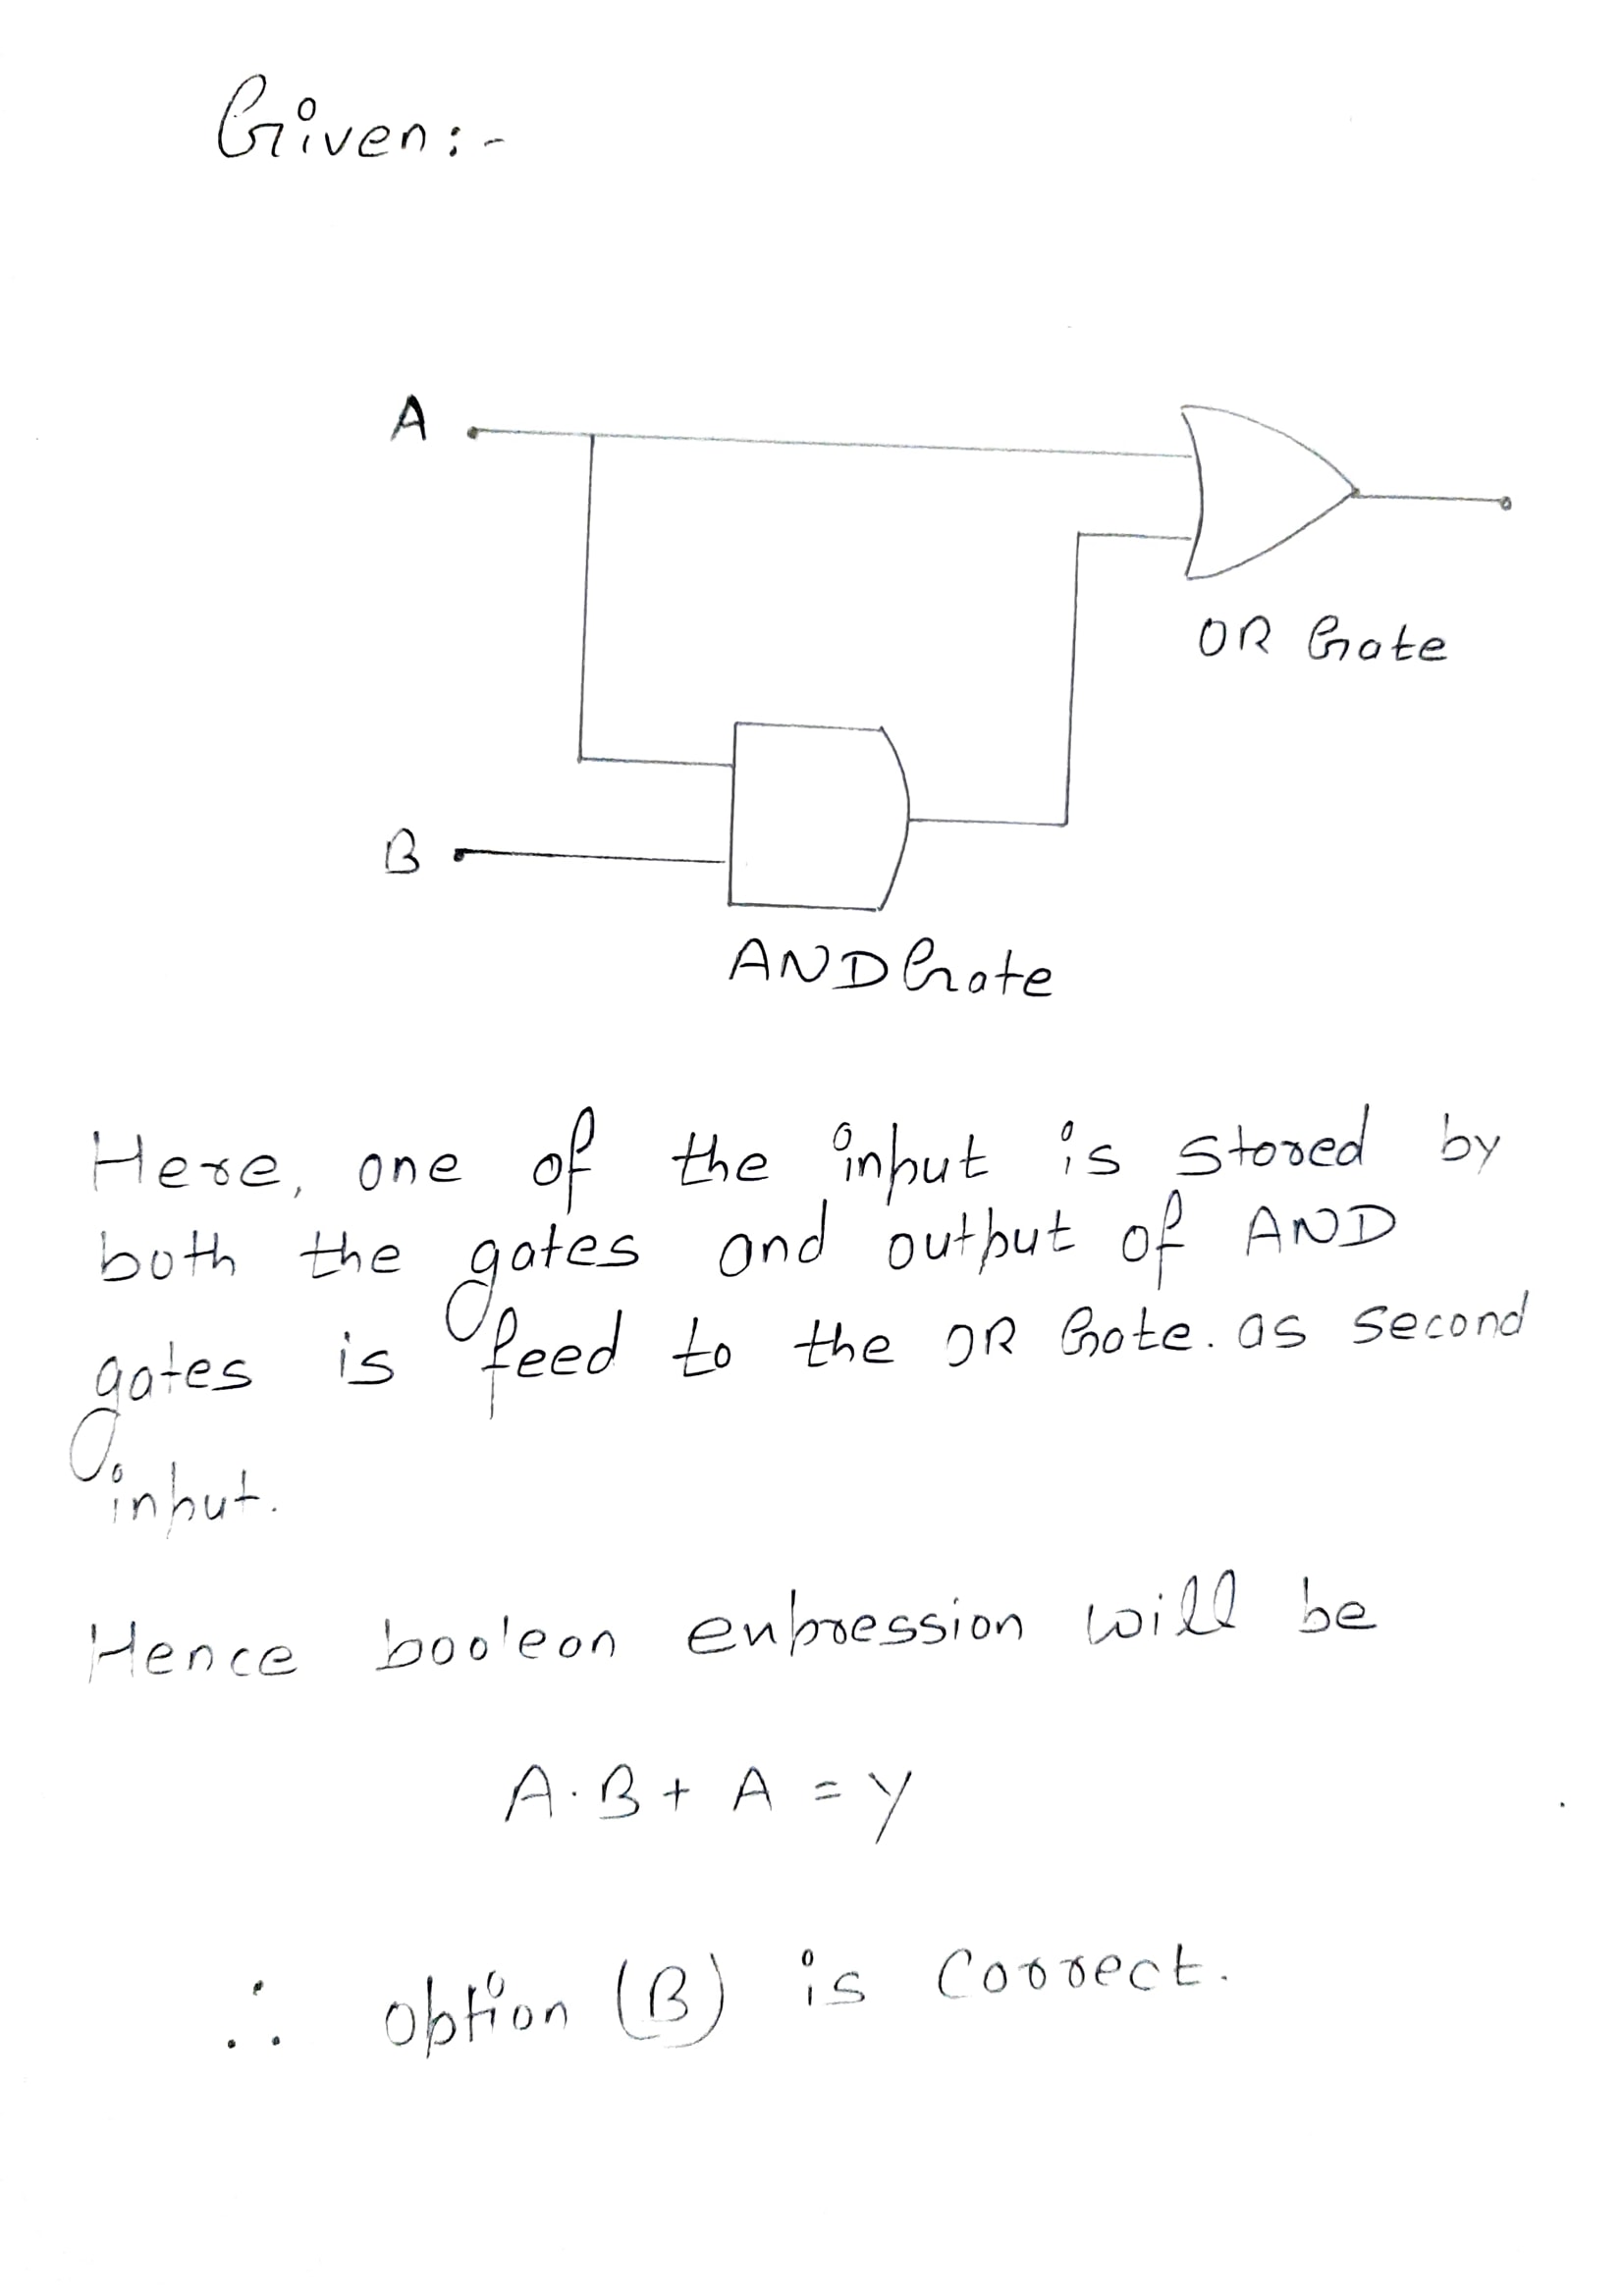 Given:-
A
OR Gate
B
AND Gate
Here, one of the input is stored by
both the gates and output of AND
gates is feed to the OR Gate. as second
input.
Hence boolean enpression will be
A.B + A = Y
∴ option (B) is correct.